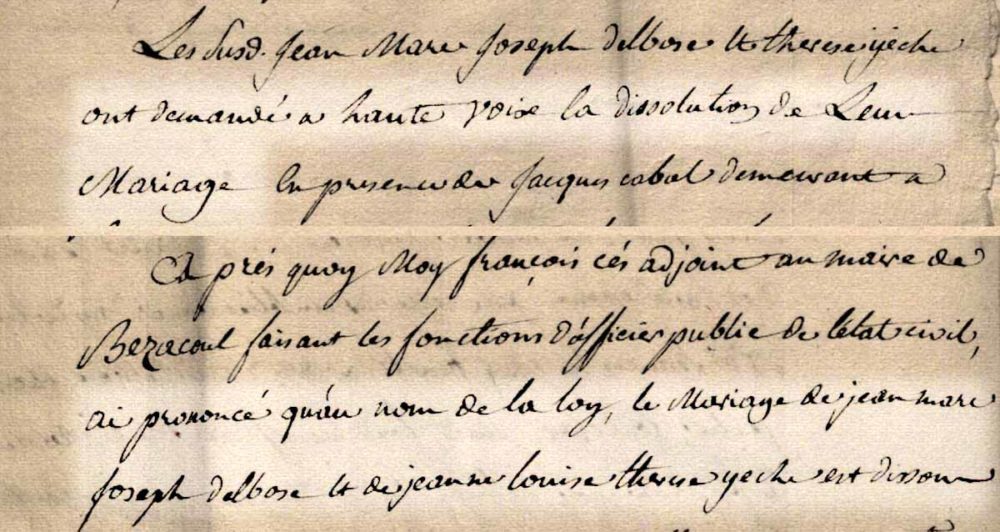 Les susd. Jean Marc Joseph delbose et therese yeche
ont demandé a haute voix la dissolution de Leur
Mariage En presence de Jacques cabal demeurant a
Et après quoy Moy françois cés adjoint au maire de
Bezacoul faisant les fonctions d'officier public de l'état civil,
ai prononcé qu'au nom de la loy, le Mariage de jean marc
joseph delbose et de jeanne louise therese yeche est dissous